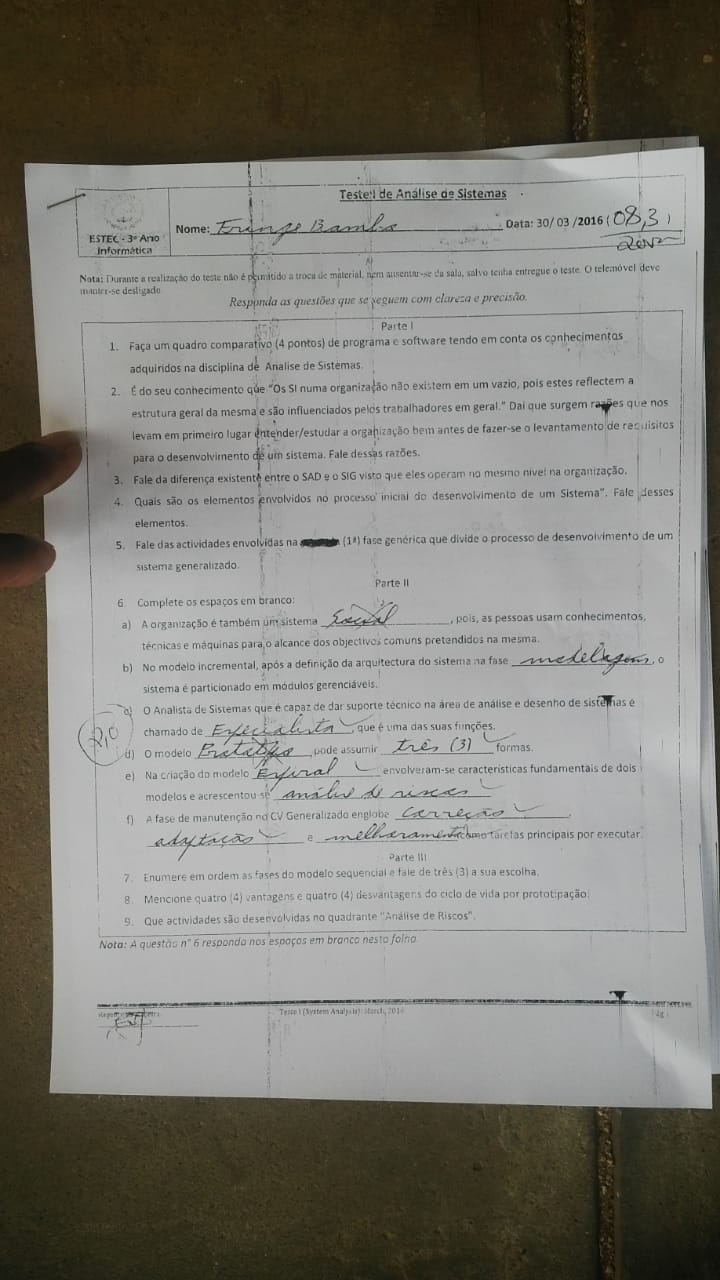 Teste I de Análise de Sistemas
ESTEC - 3º Ano
Informática
Nome: Bamba Data: 30/ 03 /2016 (08,3)
Nota: Durante a realização do teste não é permitido a troca de material, nem ausentar-se da sala, salvo tenha entregue o teste. O telemóvel deve
manter-se desligado
Responda as questões que se seguem com clareza e precisão.
Parte I
1. Faça um quadro comparativo (4 pontos) de programa e software tendo em conta os conhecimentos
adquiridos na disciplina de Analise de Sistemas.
2. É do seu conhecimento que "Os SI numa organização não existem em um vazio, pois estes reflectem a
estrutura geral da mesma e são influenciados pelos trabalhadores em geral." Daí que surgem razões que nos
levam em primeiro lugar entender/estudar a organização bem antes de fazer-se o levantamento de requisitos
para o desenvolvimento de um sistema. Fale dessas razões.
3. Fale da diferença existente entre o SAD e o SIG visto que eles operam no mesmo nível na organização.
4. Quais são os elementos envolvidos no processo inicial do desenvolvimento de um Sistema". Fale desses
elementos.
5. Fale das actividades envolvidas na (1ª) fase genérica que divide o processo de desenvolvimento de um
sistema generalizado.
Parte II
6. Complete os espaços em branco:
a) A organização é também um sistema Social, pois, as pessoas usam conhecimentos,
técnicas e máquinas para o alcance dos objectivos comuns pretendidos na mesma.
b) No modelo incremental, após a definição da arquitectura do sistema na fase modelagem, o
sistema é particionado em módulos gerenciáveis.
c) O Analista de Sistemas que é capaz de dar suporte técnico na área de análise e desenho de sistemas é
2,0 chamado de Especialista, que é uma das suas funções.
d) O modelo pode assumir três (3) formas.
e) Na criação do modelo Espiral envolveram-se características fundamentais de dois
modelos e acrescentou-se análise de riscos
f) A fase de manutenção no CV Generalizado englobe Correção,
adaptação e melhoramento como tarefas principais por executar.
Parte III
7. Enumere em ordem as fases do modelo sequencial e fale de três (3) a sua escolha.
8. Mencione quatro (4) vantagens e quatro (4) desvantagens do ciclo de vida por prototipação.
9. Que actividades são desenvolvidas no quadrante "Análise de Riscos".
Nota: A questão nº 6 responda nos espaços em branco nesta folha
Teste I (System Analysis): March, 2016